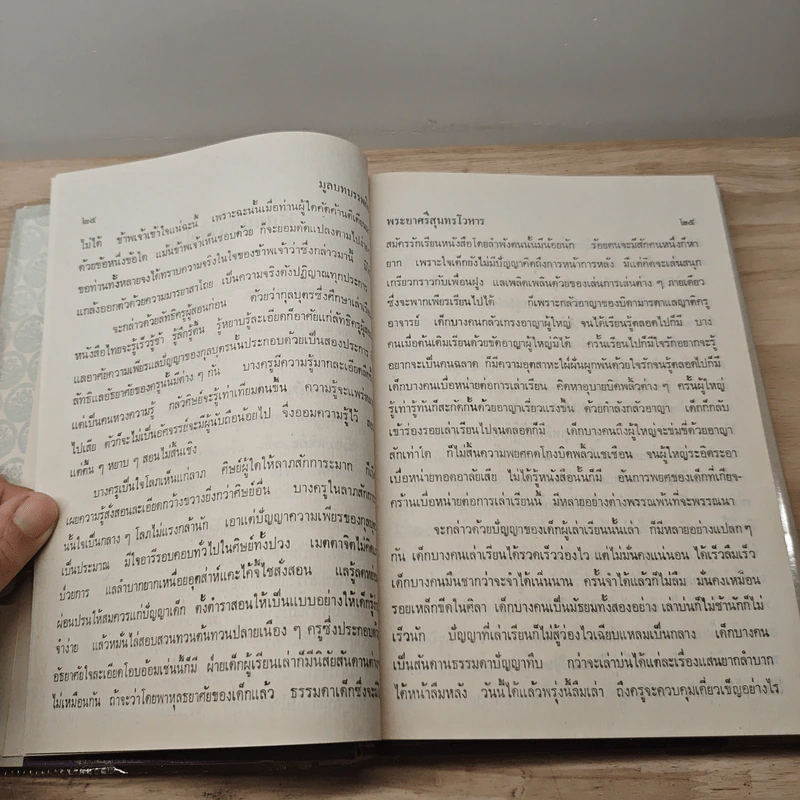 ๒๔
มูลบทบรรพกิจ
ไม่ได้ ข้าพเจ้าเข้าใจแน่ฉะนี้ เพราะฉะนั้นเมื่อท่านผู้ใดคัดค้านติเตียน
ด้วยข้อหนึ่งข้อใด แม้นข้าพเจ้าเห็นชอบด้วย ก็จะยอมดัดแปลงตามไป
ขอท่านทั้งหลายจงได้ทราบความจริงในใจของข้าพเจ้าว่าซึ่งกล่าวมานี้
แกล้งออกตัวด้วยความมารยาสาไถย เป็นความจริงดังปฏิญาณทุกประการ
จะกล่าวด้วยลัทธิครูผู้สอนก่อน ด้วยว่ากุลบุตรซึ่งศึกษาเล่าเรียน
หนังสือไทยจะรู้เร็วรู้ช้า รู้ลึกรู้ตื้น รู้หยาบรู้ละเอียดก็อาศัยแก่ลัทธิครูผู้สอน
แลอาศัยความเพียรแลปัญญาของกุลบุตรนั้นประกอบด้วยเป็นสองประการ
ลัทธิแลอัธยาศัยของครูนั้นมีต่าง ๆ กัน บางครูมีความรู้มากละเอียด
แต่เป็นคนหวงความรู้ กลัวศิษย์จะรู้เท่าเทียมตนขึ้น ความรู้จะแพร่หลาย
ไปเสีย ตัวก็จะไม่เป็นอัศจรรย์จะมีผู้นับถือน้อยไป จึงออมความรู้ไว้
แต่ตื้น ๆ หยาบ ๆ สอนไม่สิ้นเชิง
บางครูเป็นใจโลภเห็นแก่ลาภ ศิษย์ผู้ใดให้ลาภสักการะมาก ก็
เผยความรู้สั่งสอนละเอียดกว้างขวางยิ่งกว่าศิษย์อื่น บางครูในลาภสักการ
นั้นใจเป็นกลาง ๆ โลภไม่แรงกล้านัก เอาแต่ปัญญาความเพียรของกุลบุตร
เป็นประมาณ มีใจอารีรอบคอบทั่วไปในศิษย์ทั้งปวง เมตตาจิตไม่คิด
ป่วยการ แลลำบากยากเหนื่อยอุตส่าห์แคะไค้จี้ไชสั่งสอน แลรู้ลด
ผ่อนปรนให้สมควรแก่ปัญญาเด็ก ตั้งตำราสอนให้เป็นแบบอย่างให้เด็กรู้
จำง่าย แล้วหมั่นไล่สอบสวนทวนต้นทวนปลายเนือง ๆ ครูซึ่งประกอบด้วย
อัธยาศัยใจละเอียดโอบอ้อมเช่นนี้ก็มี ฝ่ายเด็กผู้เรียนเล่าก็มีนิสัยสันดานต่าง
ไม่เหมือนกัน ถ้าจะว่าโดยพาหุลธยาศัยของเด็กแล้ว ธรรมดาเด็กซึ่งจะ
พระยาศรีสุนทรโวหาร
๒๕
สมัครรักเรียนหนังสือโดยลำพังตนนั้นมีน้อยนัก ร้อยคนจะมีสักคนหนึ่งก็หา
ยาก เพราะใจเด็กยังไม่มีปัญญาคิดถึงการหน้าการหลัง มีแต่คิดจะเล่นสนุก
เกรียวกราวกับเพื่อนฝูง แลเพลิดเพลินด้วยของเล่นการเล่นต่าง ๆ ภายเดียว
ซึ่งจะพากเพียรเรียนไปได้ ก็เพราะกลัวอาญาของบิดามารดาแลญาติครู
อาจารย์ เด็กบางคนกลัวเกรงอาญาผู้ใหญ่ จนได้เรียนรู้ตลอดไปก็มี บาง
คนเมื่อต้นเดิมเรียนด้วยขัดอาญาผู้ใหญ่มิได้ ครั้นเรียนไปก็มีใจรักอยากจะรู้
อยากจะเป็นคนฉลาด ก็มีความอุตสาหะใฝ่ฝันผูกพันด้วยใจรักจนรู้ตลอดไปก็มี
เด็กบางคนเบื่อหน่ายต่อการเล่าเรียน คิดหาอุบายบิดพลิ้วต่าง ๆ ครั้นผู้ใหญ่
รู้เท่ารู้ทันก็สะกัดกั้นด้วยอาญาเรี่ยวแรงขึ้น ด้วยกำลังกลัวอาญา เด็กก็กลับ
เข้าร่องรอยเล่าเรียนไปจนตลอดก็มี เด็กบางคนถึงผู้ใหญ่จะข่มขี่ด้วยอาญา
สักเท่าใด ก็ไม่สิ้นความพยศคดโกงบิดพลิ้วแชเชือน จนผู้ใหญ่ระอิดระอา
เบื่อหน่ายทอดอาลัยเสีย ไม่ได้รู้หนังสือนั้นก็มี อันการพยศของเด็กที่เกียจ-
คร้านเบื่อหน่ายต่อการเล่าเรียนนี้ มีหลายอย่างต่างพรรณพ้นที่จะพรรณนา
จะกล่าวด้วยปัญญาของเด็กผู้เล่าเรียนนั้นเล่า ก็มีหลายอย่างแปลกๆ
กัน เด็กบางคนเล่าเรียนได้รวดเร็วว่องไว แต่ไม่มั่นคงแน่นอน ได้เร็วลืมเร็ว
เด็กบางคนมึนชากว่าจะจำได้เนิ่นนาน ครั้นจำได้แล้วก็ไม่ลืม มั่นคงเหมือน
รอยเหล็กขีดในศิลา เด็กบางคนเป็นมัธยมทั้งสองอย่าง เล่าบ่นก็ไม่ช้านักก็ไม่
เร็วนัก ปัญญาที่เล่าเรียนก็ไม่สู้ว่องไวเฉียบแหลมเป็นกลาง เด็กบางคน
เป็นสันดานธรรมดาปัญญาทึบ กว่าจะเล่าบ่นได้แต่ละเรื่องแสนยากลำบาก
ได้หน้าลืมหลัง วันนี้ได้แล้วพรุ่งนี้ลืมเล่า ถึงครูจะควบคุมเคี่ยวเข็ญอย่างไร